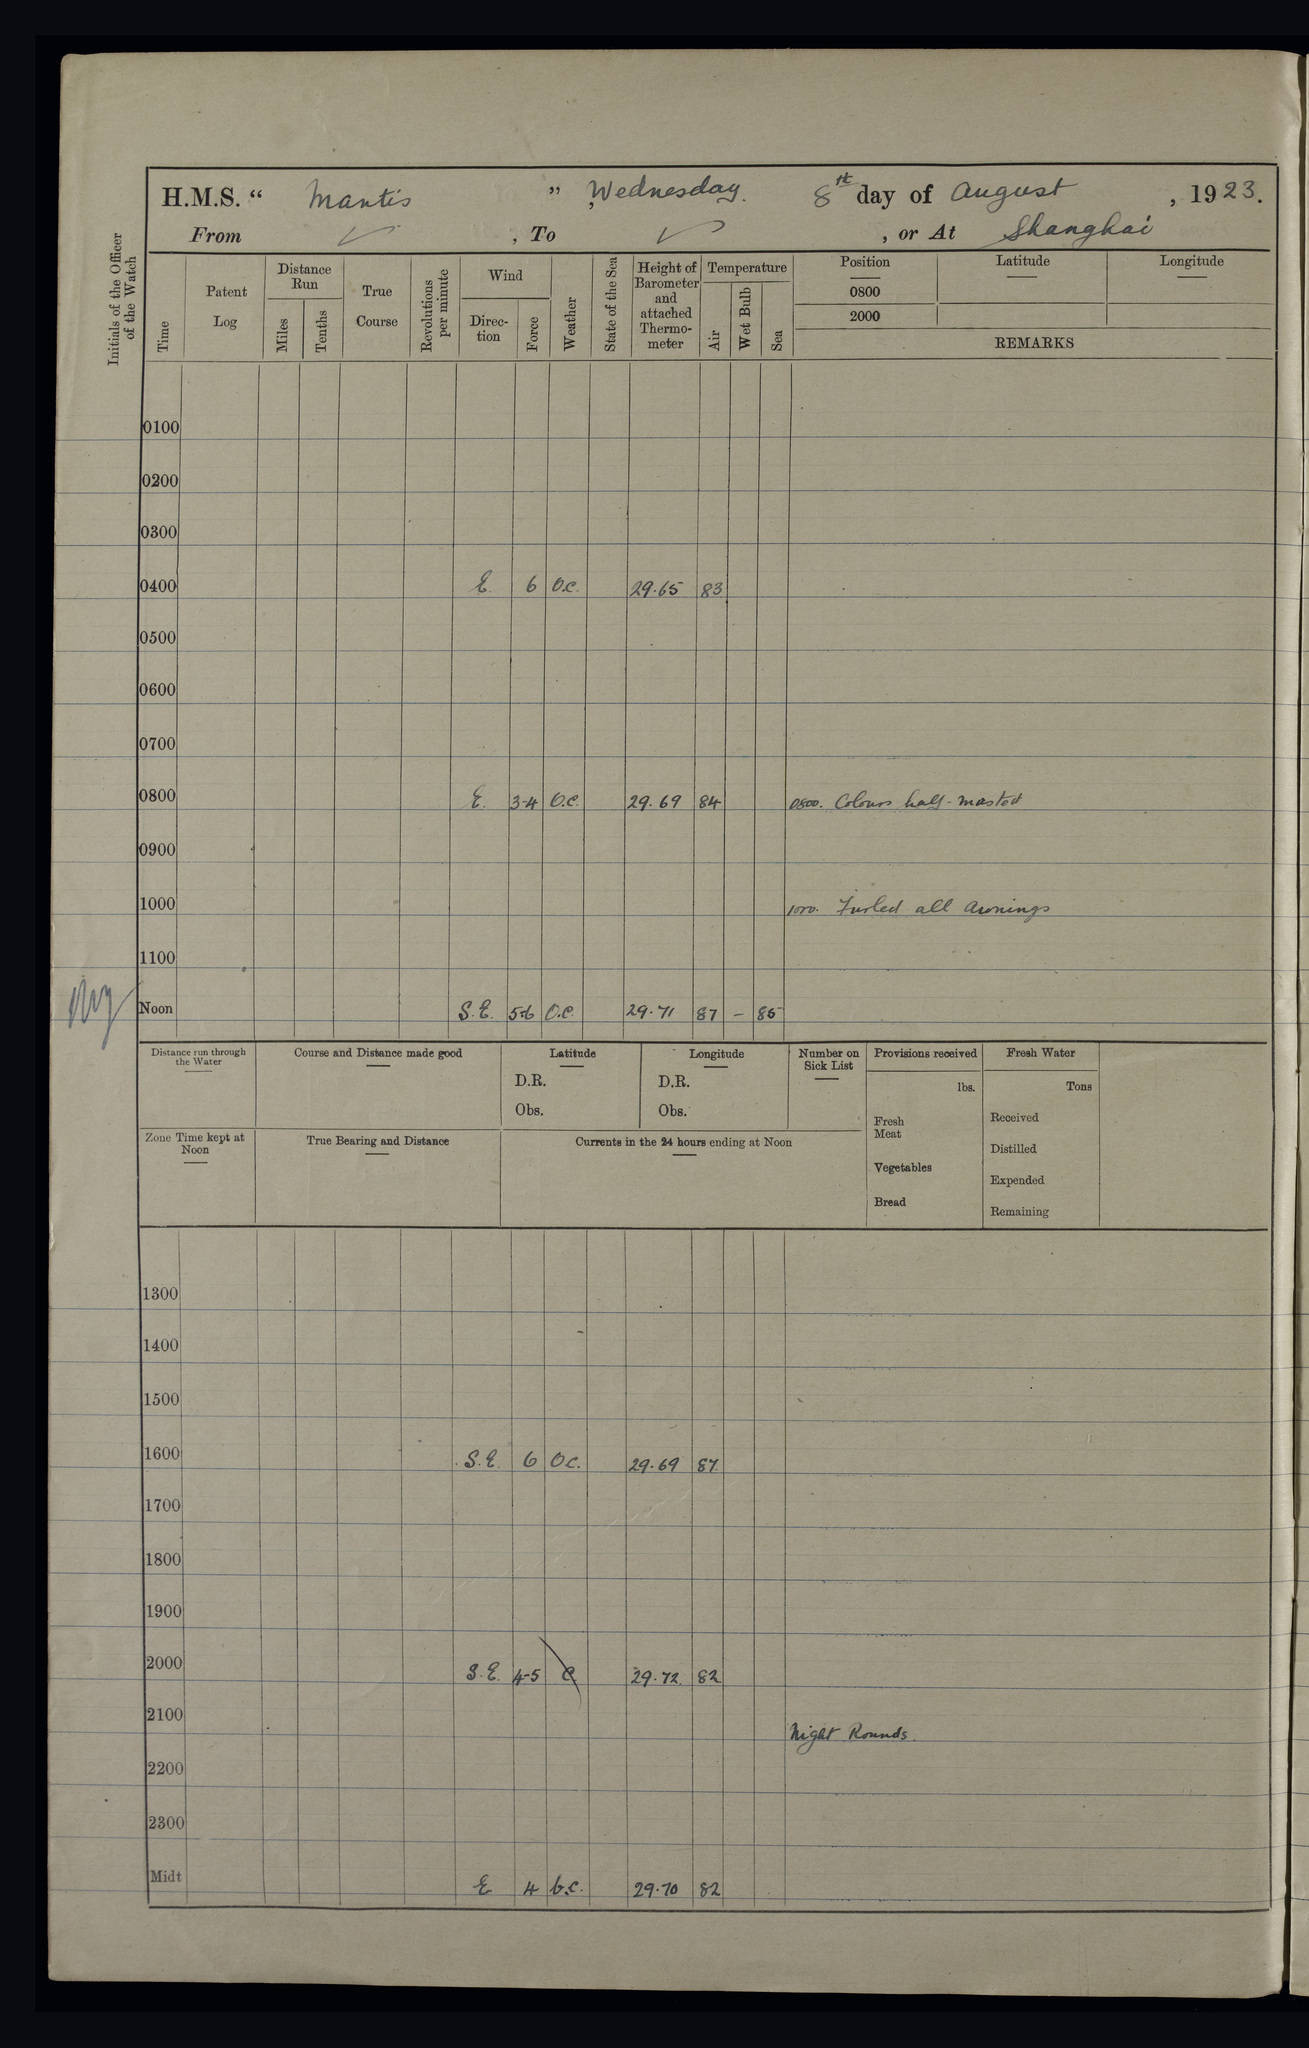 H.M.S. “ Mantis ” , Wednesday. 8th day of August , 1923.
From ✓ , To ✓ , or At Shanghai
Initials of the Officer of the Watch
Time
Patent Log
Distance Run
Miles
Tenths
True Course
Revolutions per minute
Wind
Direc-tion
Force
Weather
State of the Sea
Height of Barometer and attached Thermo-meter
Temperature
Air
Wet Bulb
Sea
Position Latitude Longitude
0800
2000
REMARKS
0100
0200
0300
0400 E. 6 O.C. 29.65 83
0500
0600
0700
0800 E. 3-4 O.C. 29.69 84 0800. Colours half-masted
0900
1000 1000. Furled all Awnings
1100
Noon S.E. 5-6 O.C. 29.71 87 – 85
Distance run through the Water
Course and Distance made good
Latitude
D.R.
Obs.
Longitude
D.R.
Obs.
Number on Sick List
Provisions received
lbs.
Fresh Meat
Vegetables
Bread
Fresh Water
Tons
Received
Distilled
Expended
Remaining
Zone Time kept at Noon
True Bearing and Distance
Currents in the 24 hours ending at Noon
1300
1400
1500
1600 S.E. 6 O.C. 29.69 87.
1700
1800
1900
2000 S.E. 4-5 C 29.72. 82
2100 Night Rounds.
2200
2300
Midt E 4 b.c. 29.70 82